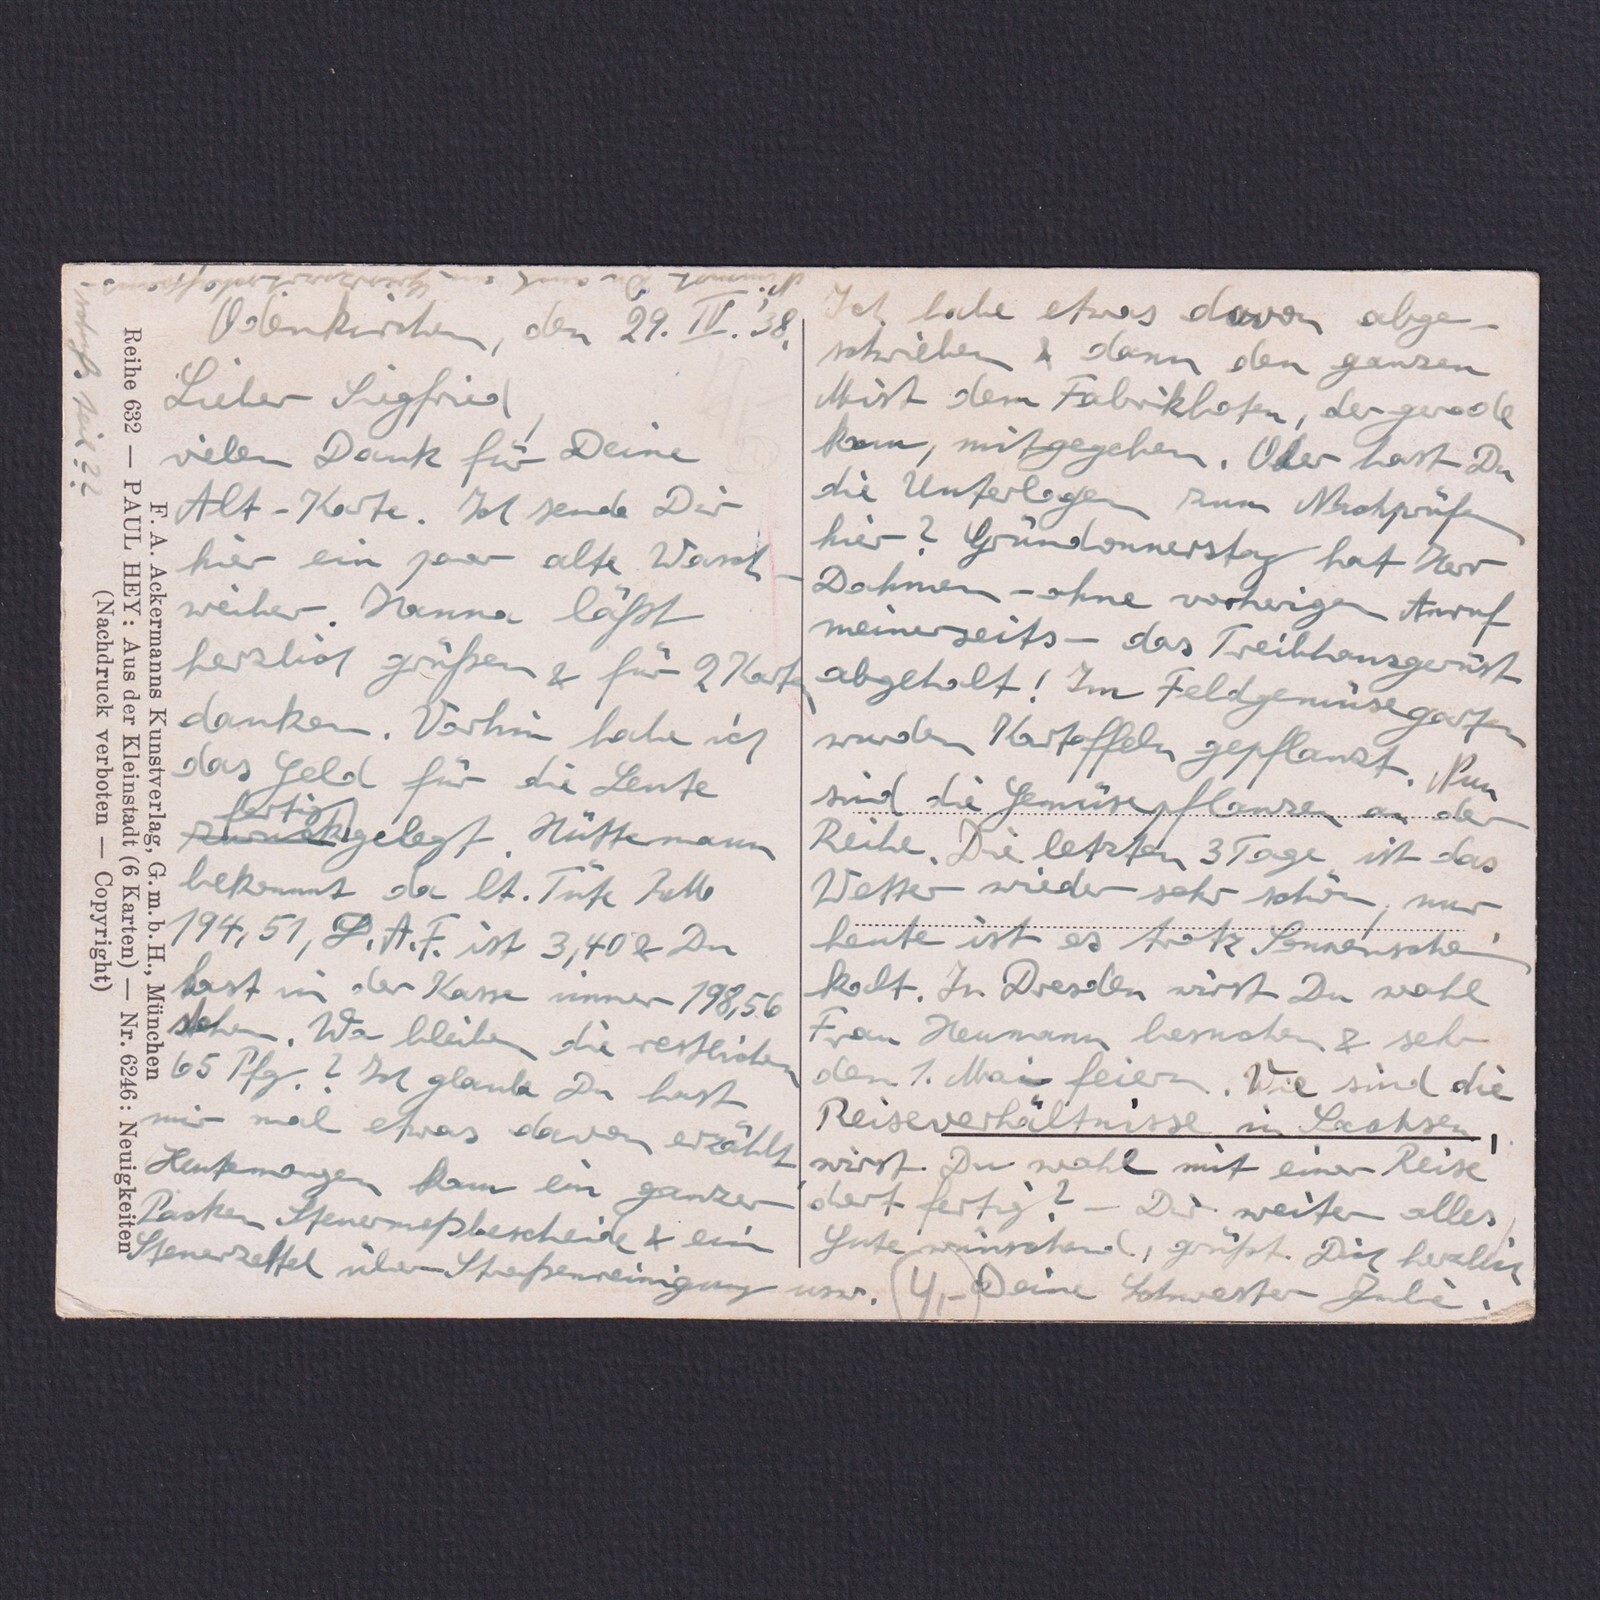 Odenkirchen, den 29. IV. 38.
Lieber Siegfried,
vielen Dank für Deine
Alt-Karte. Ich sende Dir
hier ein paar alte Wasch-
weiber. Hanna läßt
herzlich grüßen & für 2 Karten
danken. Vorhin habe ich
das Geld für die Leute
fertig
zurückgelegt. Hüttemann
bekommt da lt. Tüte
194,51, D.A.F. ist 3,40 & Du
hast in der Kasse immer 198,56
stehen. Wo bleiben die restlichen
65 Pfg.? Ich glaube Du hast
mir mal etwas davon erzählt
Heutemorgen kam ein ganzer
Packen Steuermeßbescheide & ein
Steuerzettel über Straßenreinigung usw.
Ich habe etwas davon abge-
schrieben & dann den ganzen
Mist dem Fabrikboten, der gerade
kam, mitgegeben. Oder hast Du
die Unterlagen zum Nachprüfen
hier? Gründonnerstag hat Herr
Dahmen – ohne vorherigen Anruf
meinerseits – das Treibhausgerüst
abgeholt! Im Feldgemüsegarten
wurden Kartoffeln gepflanzt. Nun
sind die Gemüsepflanzen an der
Reihe. Die letzten 3 Tage ist das
Wetter wieder sehr schön, nur
heute ist es trotz Sonnenschein
kalt. In Dresden wirst Du wohl
Frau Heumann besuchen & sehr
den 1. Mai feiern. Wie sind die
Reiseverhältnisse in Sachsen,
wirst Du wohl mit einer Reise
dort fertig? – Dir weiter alles
Gute wünschend, grüßt Dich herzlich
Deine Schwester Julie.
(4,-)
F. A. Ackermanns Kunstverlag, G.m.b.H., München
Reihe 632 — PAUL HEY: Aus der Kleinstadt (6 Karten) — Nr. 6246: Neuigkeiten
(Nachdruck verboten — Copyright)